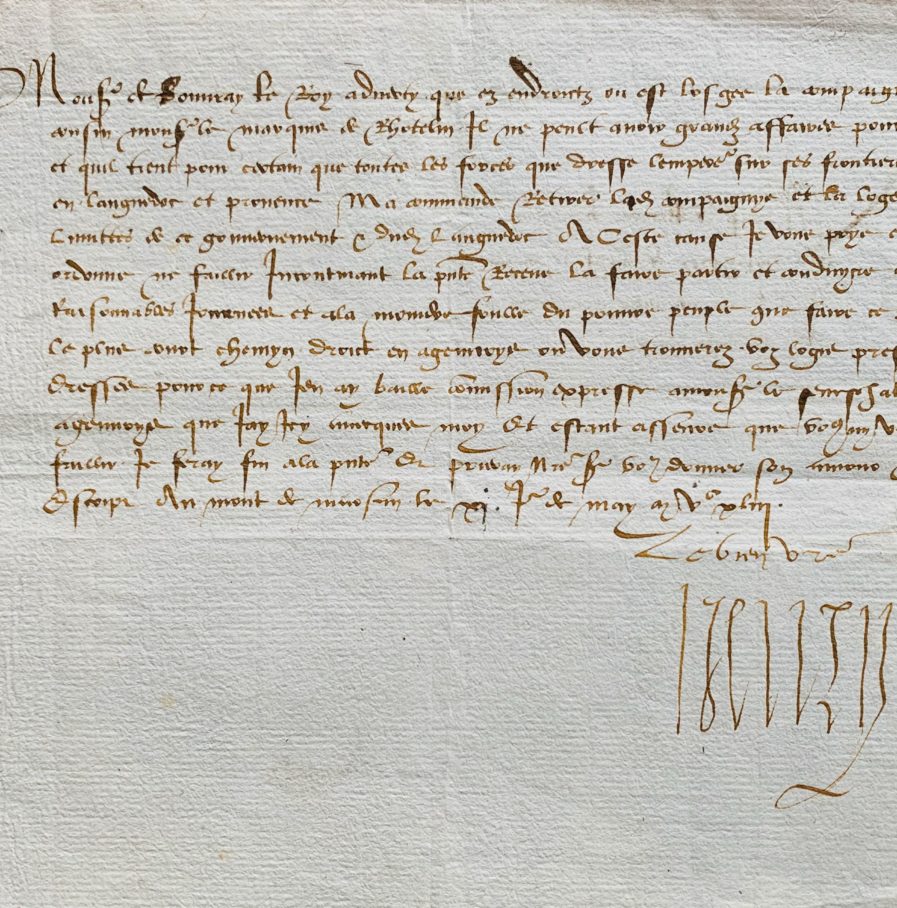 Monsr de Bonnay le Roy adverty que ez endroictz ou est logee la compaign
cousin monsr le marquis de Rhotelin Il ne peult avoir grandz affaires pour
et quil tient pour certain que toutes les forces que dresse lempereur sur ses frontier
en languedoc et provence Ma commande Retirer lad compaignye et la loge
limites de ce gouvernement dud Languedoc A Ceste cause Je vous prye
ordonne ne faillir Incontinant la pnte Receue la faire partir et conduyre
Raisonnables Journees et ala moindre foulle du pouvre peuple que faire ce
le plus court chemyn droict en agennoys ou vous trouverez voz logis
dresses pour ce que Jen ay baille commission expresse a monsr le seneschal
agennoys que Jay Icy avecques moy Et estant asseure que
faillir Je feray fin ala pnte Et priray Nre sr vous donner
Escript Au mont de marsan le xj Jr de may Vc xliij
Le bien vre
Henry